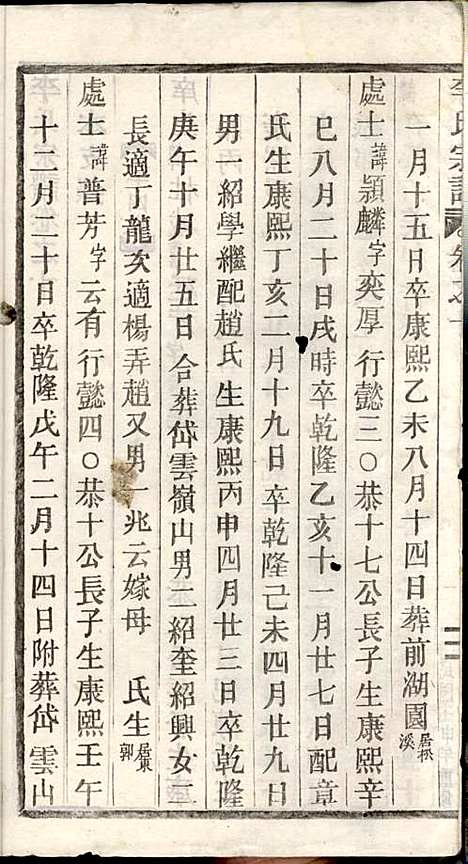 李氏宗譜 卷之十
一月十五日卒康熙乙未八月十四日葬前湖園居松溪
處士諱穎麟字奕厚行懿三〇恭十七公長子生康熙辛
巳八月二十日戌時卒乾隆乙亥十一月廿七日配章
氏生康熙丁亥二月十九日卒乾隆己未四月廿九日
男一紹學繼配趙氏生康熙丙申四月廿三日卒乾隆
庚午十月廿五日合葬岱雲嶺山男二紹奎紹興女二
長適丁龍次適楊弄趙又男一兆云嫁母 氏生居東郭
處士諱普芳字云有行懿四〇恭十公長子生康熙壬午
十二月二十日卒乾隆戊午二月十四日附葬岱雲山